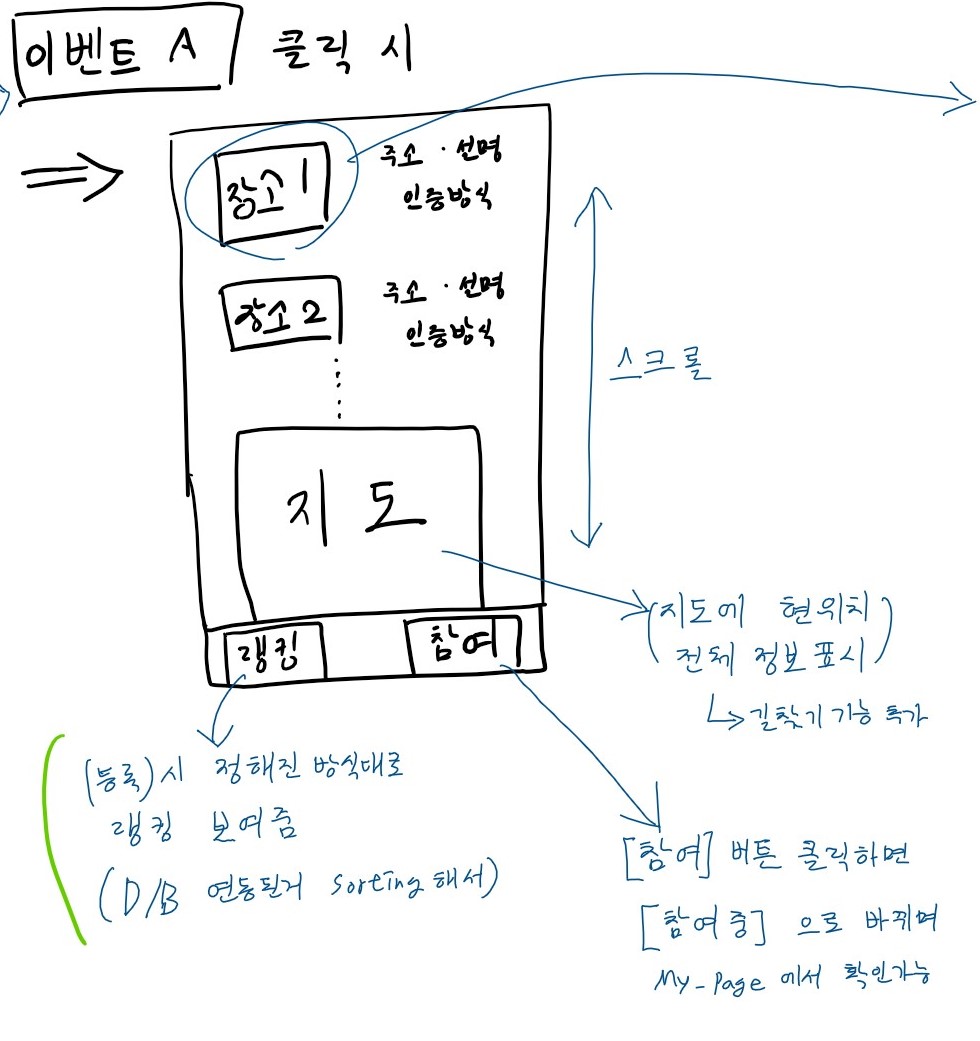 이벤트 A 클릭 시
장소 1
주소 · 설명
인증방식
장소 2
주소 · 설명
인증방식
스크롤
지도
랭킹
참여
(지도에 현위치
전체 정보 표시)
↳ 길찾기 기능 추가
(등록)시 정해진 방식대로
랭킹 보여줌
(D/B 연동된거 Sorting 해서)
[참여] 버튼 클릭하면
[참여중] 으로 바뀌며
My-Page 에서 확인가능